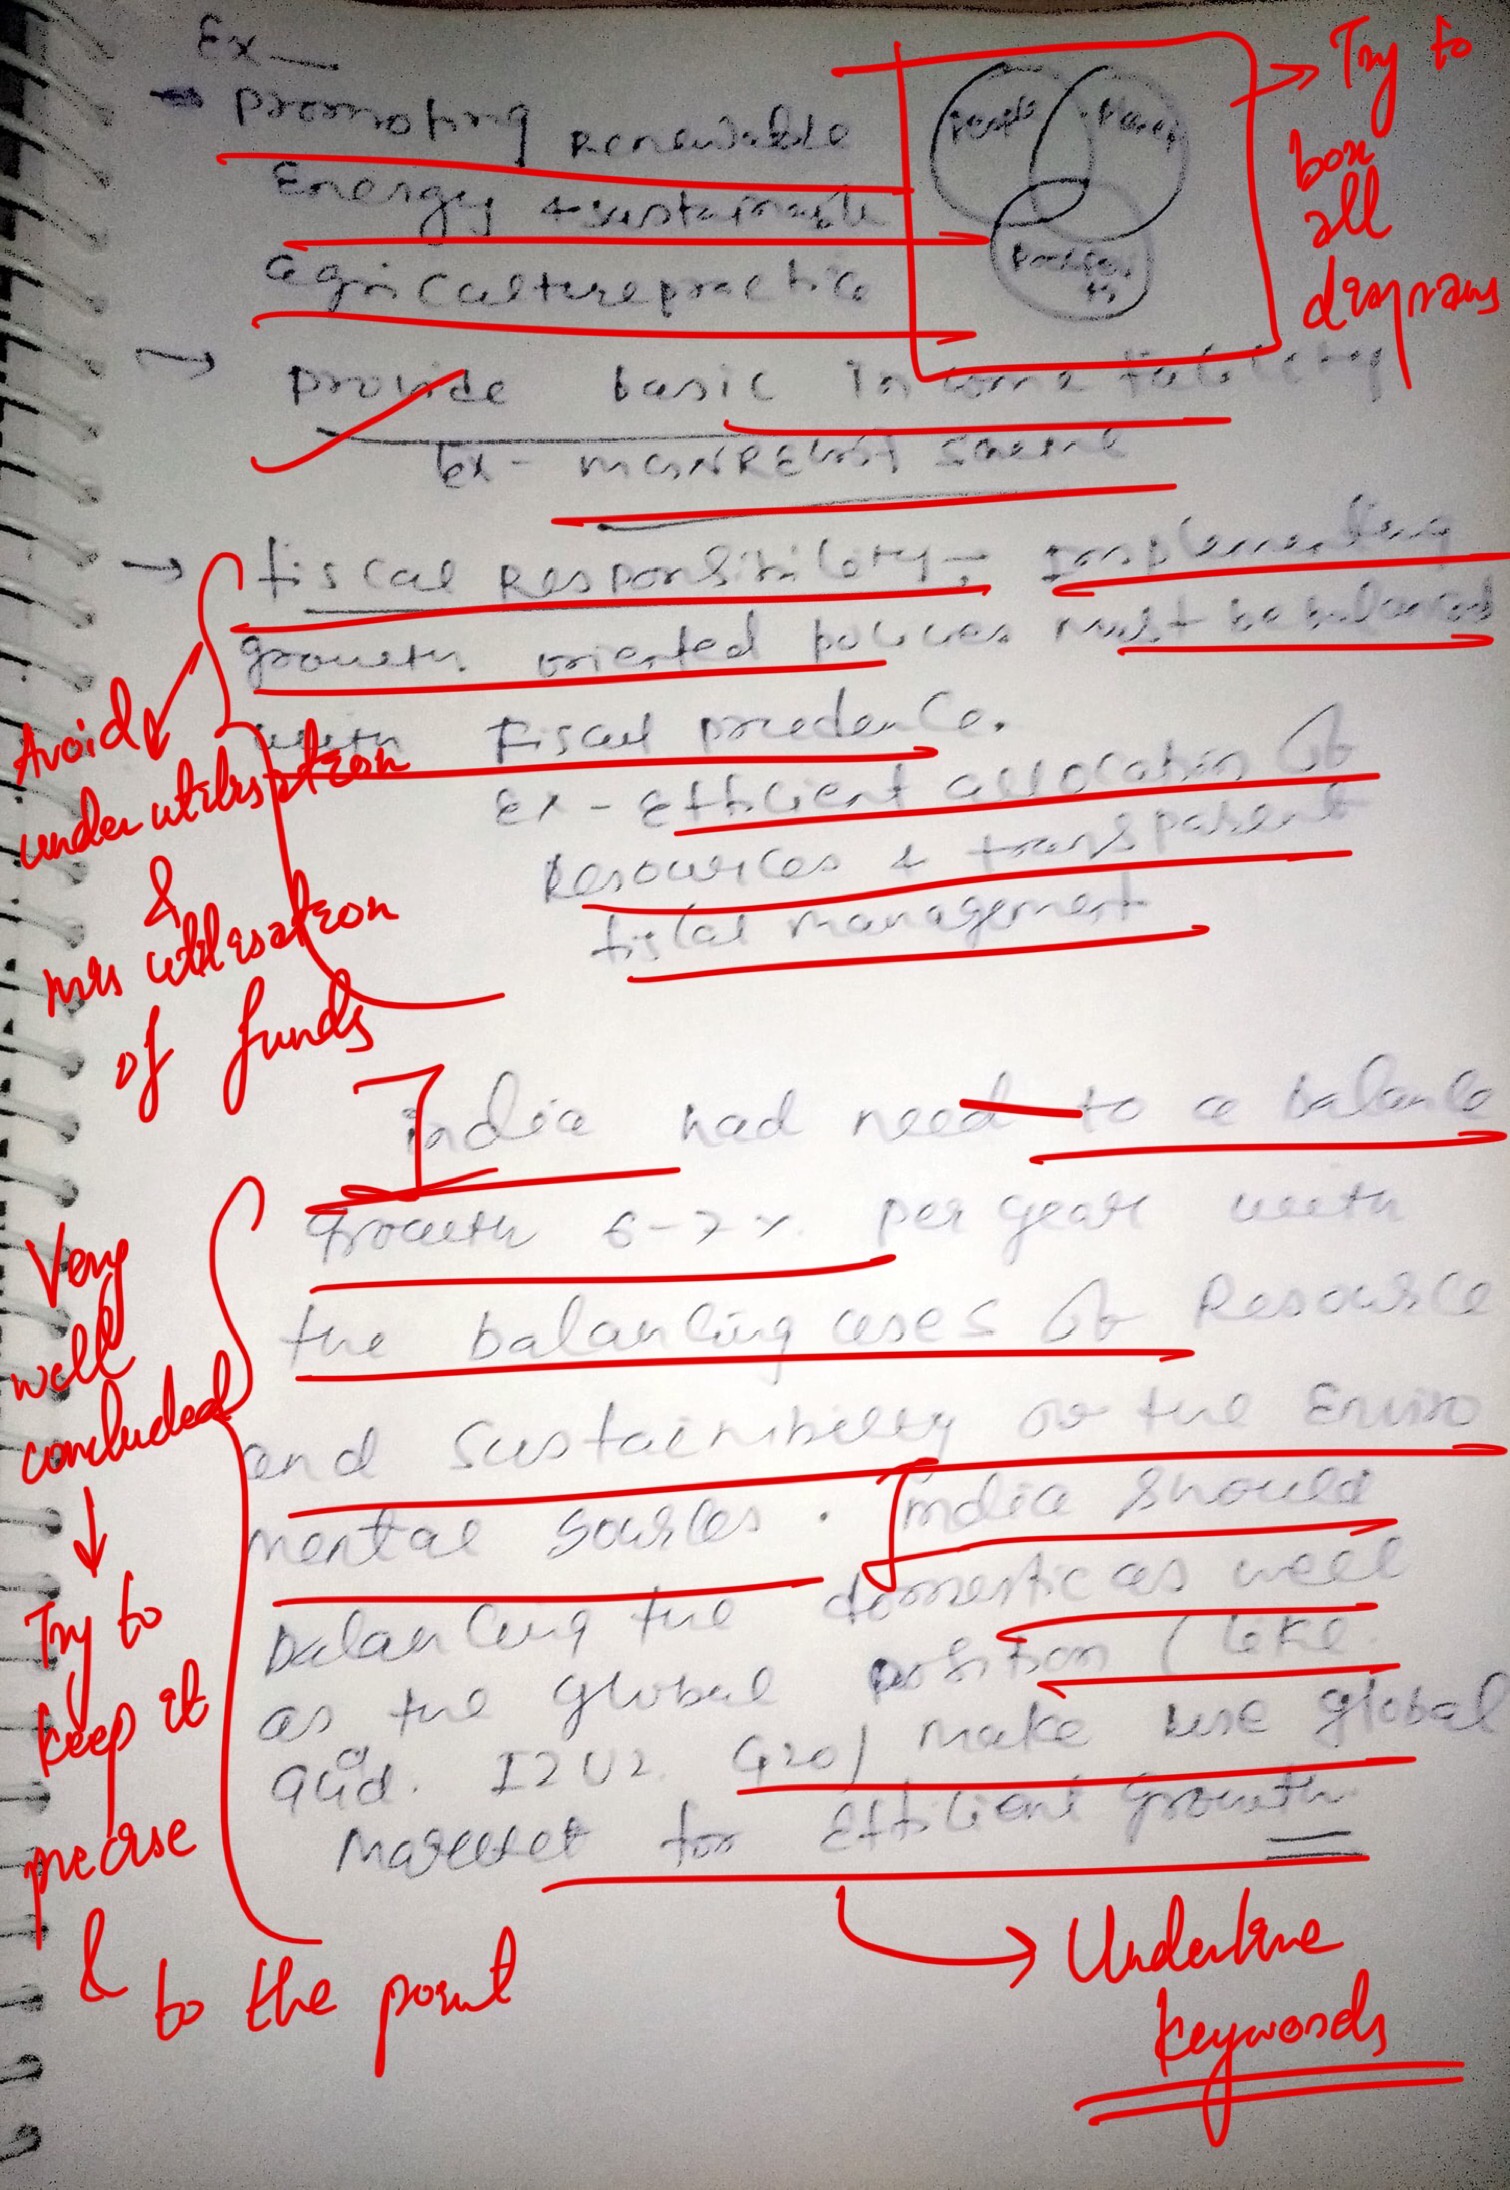 Ex —
→ Promoting Renewable
Energy & sustainable
agriculture practice
People
Prosperi
ty
Try to
box
all
diagrams
→ Provide basic Income
Ex - MGNREGA Scheme
→ fiscal Responsibility :- Implementing
growth oriented policies must be balanced
with Fiscal prudence.
Ex - Efficient allocation of
Resources & transparent
fiscal management
Avoid
under utilisation
&
mis utilisation
of funds
India had need to a balance
Growth 6-7% per year with
the balancing uses of Resource
and Sustainibility of the Enviro
mental Sources. India should
balancing the domestic as well
as the global position (like
Quad. I2U2. G20) make use global
Market for Efficient Growth.
Very
well
concluded
↓
Try to
keep it
precise
& to the point
→ Underline
keywords